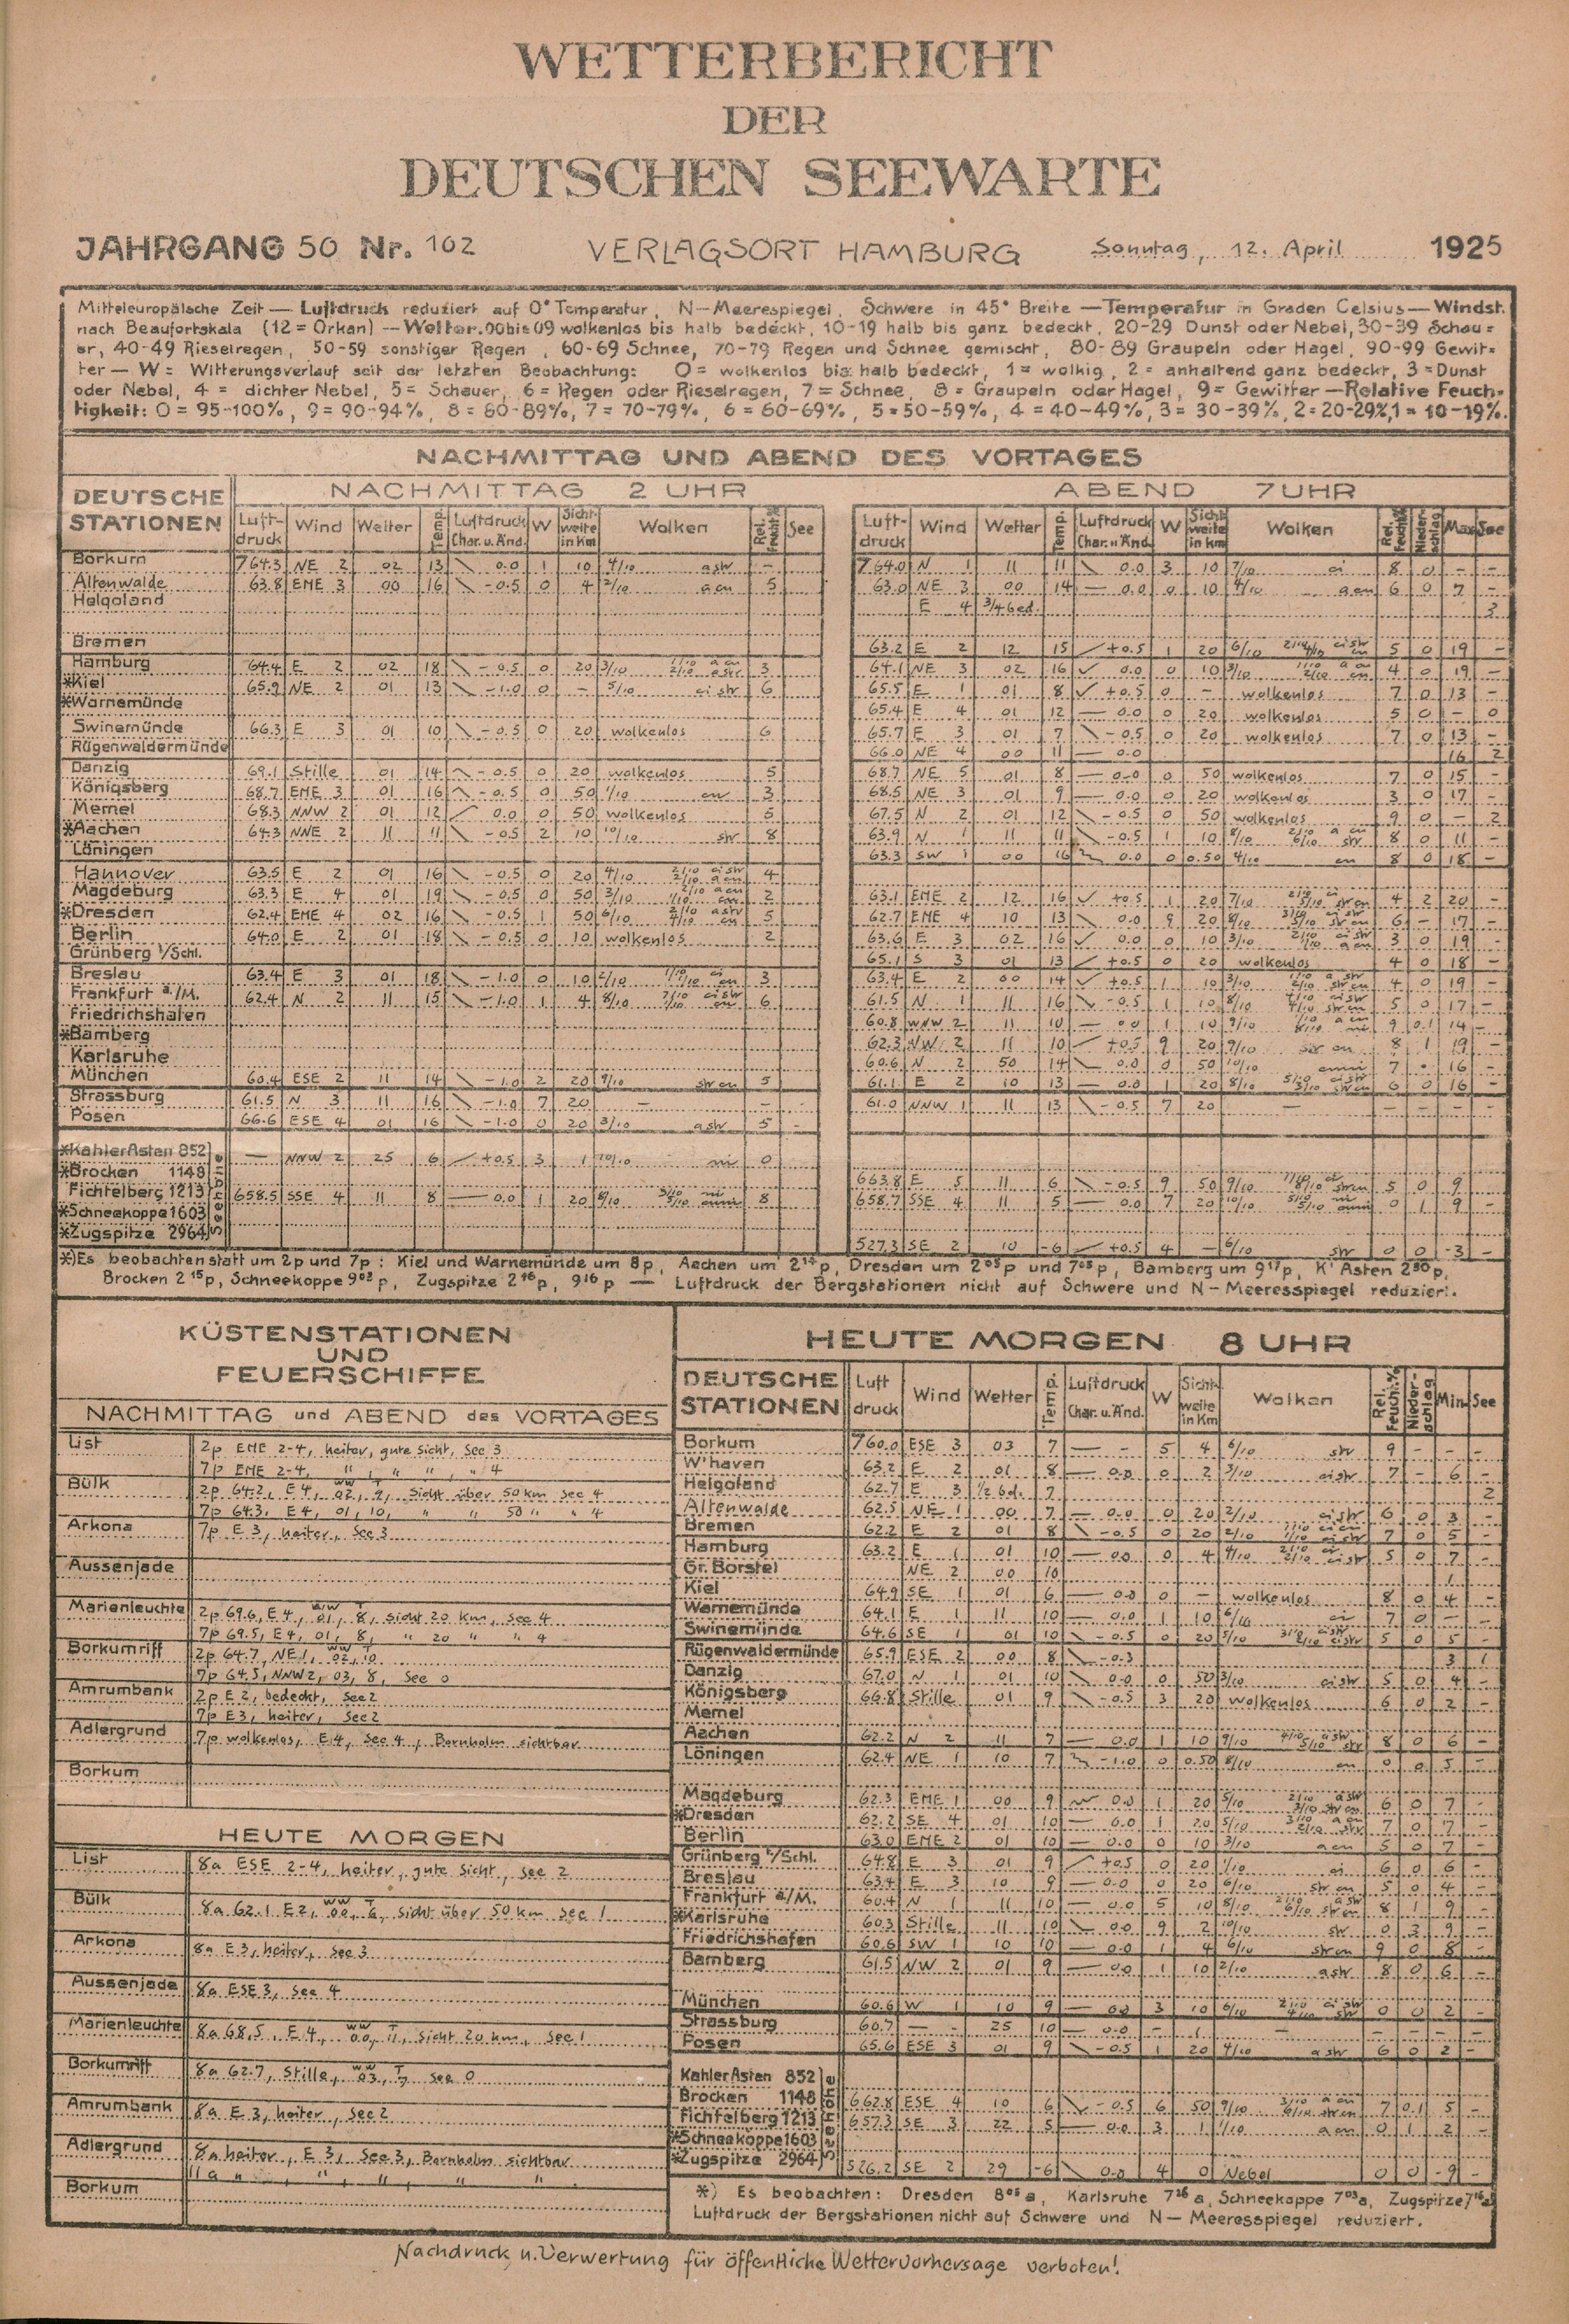 WETTERBERICHT
DER
DEUTSCHEN SEEWARTE
JAHRGANG 50 Nr. 102 VERLAGSORT HAMBURG Sonntag, 12. April 1925
Mitteleuropäische Zeit — Luftdruck reduziert auf 0° Temperatur, N—Meerespiegel, Schwere in 45° Breite — Temperatur in Graden Celsius — Windst.
nach Beaufortskala (12 = Orkan) — Wetter. 00 bis 09 wolkenlos bis halb bedeckt, 10-19 halb bis ganz bedeckt, 20-29 Dunst oder Nebel, 30-39 Schau=
er, 40-49 Rieselregen, 50-59 sonstiger Regen, 60-69 Schnee, 70-79 Regen und Schnee gemischt, 80-89 Graupeln oder Hagel, 90-99 Gewit=
ter — W = Witterungsverlauf seit der letzten Beobachtung: 0 = wolkenlos bis halb bedeckt, 1 = wolkig, 2 = anhaltend ganz bedeckt, 3 = Dunst
oder Nebel, 4 = dichter Nebel, 5 = Schauer, 6 = Regen oder Rieselregen, 7 = Schnee, 8 = Graupeln oder Hagel, 9 = Gewitter — Relative Feuch=
tigkeit: 0 = 95-100%, 9 = 90-94%, 8 = 80-89%, 7 = 70-79%, 6 = 60-69%, 5 = 50-59%, 4 = 40-49%, 3 = 30-39%, 2 = 20-29%, 1 = 10-19%.
NACHMITTAG UND ABEND DES VORTAGES
DEUTSCHE STATIONEN
NACHMITTAG 2 UHR
Luft-druck Wind Wetter Temp. Luftdruck Char. u. Änd. W Sicht-weite in Km Wolken Rel. Feucht.% See
ABEND 7 UHR
Luft-druck Wind Wetter Temp. Luftdruck Char. u. Änd. W Sicht-weite in Km Wolken Rel. Feucht.% Nieder-schlag Max See
Borkum 764.3 NE 2 02 13 0.0 1 10 4/10 astr - 764.0 N 1 11 11 0.0 3 10 7/10 ci 8 0 - -
Altenwalde 63.8 ENE 3 00 16 -0.5 0 4 2/10 acu 5 63.0 NE 3 00 14 0.0 0 10 4/10 acu 6 0 7 -
Helgoland E 4 3/4 bed. 3
Bremen 63.2 E 2 12 15 +0.5 1 20 6/10 5 0 19 -
Hamburg 64.4 E 2 02 18 -0.5 0 20 3/10 3 64.1 NE 3 02 16 0.0 0 10 3/10 4 0 19 -
*Kiel 65.9 NE 2 01 13 -1.0 0 - 5/10 cistr 6 65.5 E 1 01 8 +0.5 0 - wolkenlos 7 0 13 -
*Warnemünde 65.4 E 4 01 12 0.0 0 20 wolkenlos 5 0 - 0
Swinemünde 66.3 E 3 01 10 -0.5 0 20 wolkenlos 6 65.7 E 3 01 7 -0.5 0 20 wolkenlos 7 0 13 -
Rügenwaldermünde 66.0 NE 4 00 11 0.0 16 2
Danzig 69.1 Stille 01 14 -0.5 0 20 wolkenlos 5 68.7 NE 5 01 8 0.0 0 50 wolkenlos 7 0 15 -
Königsberg 68.7 ENE 3 01 16 -0.5 0 50 1/10 cu 3 68.5 NE 3 01 9 0.0 0 20 wolkenlos 3 0 17 -
Memel 68.3 NNW 2 01 12 0.0 0 50 wolkenlos 5 67.5 N 2 01 12 -0.5 0 50 wolkenlos 9 0 - 2
*Aachen 64.3 NNE 2 11 11 -0.5 2 10 10/10 str 8 63.9 N 1 11 11 -0.5 1 10 8/10 8 0 11 -
Löningen 63.3 SW 1 00 16 0.0 0 0.50 4/10 cu 8 0 18 -
Hannover 63.5 E 2 01 16 -0.5 0 20 4/10 4
Magdeburg 63.3 E 4 01 19 -0.5 0 50 3/10 2 63.1 ENE 2 12 16 +0.5 1 20 7/10 4 2 20 -
*Dresden 62.4 ENE 4 02 16 -0.5 1 50 6/10 5 62.7 ENE 4 10 13 0.0 9 20 8/10 6 - 17 -
Berlin 64.0 E 2 01 18 -0.5 0 10 wolkenlos 2 63.6 E 3 02 16 0.0 0 10 3/10 3 0 19 -
Grünberg i/Schl. 65.1 S 3 01 13 +0.5 0 20 wolkenlos 4 0 18 -
Breslau 63.4 E 3 01 18 -1.0 0 10 2/10 3 63.4 E 2 00 14 +0.5 1 10 3/10 4 0 19 -
Frankfurt a./M. 62.4 N 2 11 15 -1.0 1 4 8/10 6 61.5 N 1 11 16 -0.5 1 10 8/10 5 0 17 -
Friedrichshafen 60.8 WNW 2 11 10 0.0 1 10 9/10 9 0.1 14 -
*Bamberg 62.3 NW 2 11 10 +0.5 9 20 9/10 str cu 8 1 19 -
Karlsruhe 60.6 N 2 50 14 0.0 0 50 10/10 cuni 7 • 16 -
München 60.4 ESE 2 11 14 -1.0 2 20 9/10 strcu 5 61.1 E 2 10 13 0.0 1 20 8/10 6 0 16 -
Strassburg 61.5 N 3 11 16 -1.0 7 20 — - 61.0 NNW 1 11 13 -0.5 7 20 — - - - -
Posen 66.6 ESE 4 01 16 -1.0 0 20 3/10 astr 5 -
*Kahler Asten 852 — NNW 2 25 6 +0.5 3 1 10/10 ni 0
*Brocken 1148 663.8 E 5 11 6 -0.5 9 50 9/10 5 0 9
Fichtelberg 1213 658.5 SSE 4 11 8 0.0 1 20 8/10 8 658.7 SSE 4 11 5 0.0 7 20 10/10 0 1 9 -
*Schneekoppe 1603
*Zugspitze 2964 527.3 SE 2 10 -6 +0.5 4 — 6/10 str 0 0 -3 -
Seehöhe
*) Es beobachten statt um 2p und 7p: Kiel und Warnemünde um 8p, Aachen um 2¹⁴p, Dresden um 2⁰⁵p und 7⁰⁵p, Bamberg um 9¹⁷p, K' Asten 2³⁰p,
Brocken 2¹⁵p, Schneekoppe 9⁰³p, Zugspitze 2¹⁶p, 9¹⁶p — Luftdruck der Bergstationen nicht auf Schwere und N—Meeresspiegel reduziert.
KÜSTENSTATIONEN
UND
FEUERSCHIFFE
NACHMITTAG und ABEND des VORTAGES
List 2p ENE 2-4, heiter, gute Sicht, See 3
7p ENE 2-4, " , " " , " 4
Bülk 2p 64.2, E 4, ww 02, T 9, Sicht über 50 km See 4
7p 64.3, E 4, 01, 10, " " 50 " " 4
Arkona 7p E 3, heiter, See 3
Aussenjade
Marienleuchte 2p 69.6, E 4, ww 01, T 8, Sicht 20 km, See 4
7p 69.5, E 4, 01, 8, " 20 " " 4
Borkumriff 2p 64.7, NE 1, ww 02, T 10
7p 64.5, NNW 2, 03, 8, See 0
Amrumbank 2p E 2, bedeckt, See 2
7p E 3, heiter, See 2
Adlergrund 7p wolkenlos, E 4, See 4, Bornholm sichtbar
Borkum
HEUTE MORGEN
List 8a ESE 2-4, heiter, gute Sicht, See 2
Bülk 8a 62.1 E 2, ww 00, T 6, Sicht über 50 km See 1
Arkona 8a E 3, heiter, See 3
Aussenjade 8a ESE 3, See 4
Marienleuchte 8a 68.5, E 4, ww 00, T 11, Sicht 20 km, See 1
Borkumriff 8a 62.7, Stille, ww 03, T 7 See 0
Amrumbank 8a E 3, heiter, See 2
Adlergrund 8a heiter, E 3, See 3, Bornholm sichtbar
11a " , " , " , " "
Borkum
HEUTE MORGEN 8 UHR
DEUTSCHE STATIONEN Luft druck Wind Wetter Temp. Luftdruck Char. u. Änd. W Sicht-weite in Km Wolken Rel. Feucht.% Nieder-schlag Min See
Borkum 760.0 ESE 3 03 7 — - 5 4 6/10 str 9 - - -
W'haven 63.2 E 2 01 8 0.0 0 2 3/10 cistr 7 - 6 -
Helgoland 62.7 E 3 1/2 bd. 7 2
Altenwalde 62.5 NE 1 00 7 0.0 0 20 2/10 cistr 6 0 3 -
Bremen 62.2 E 2 01 8 -0.5 0 20 2/10 7 0 5 -
Hamburg 63.2 E 1 01 10 0.0 0 4 4/10 5 0 7 -
Gr. Borstel NE 2 00 10 1
Kiel 64.9 SE 1 01 6 0.0 0 - wolkenlos 8 0 4 -
Warnemünde 64.1 E 1 11 10 0.0 1 10 6/10 ci 7 0 — -
Swinemünde 64.6 SE 1 01 10 -0.5 0 20 5/10 5 0 5 -
Rügenwaldermünde 65.9 ESE 2 00 8 -0.3 3 1
Danzig 67.0 N 1 01 10 0.0 0 50 3/10 cistr 5 0 4 -
Königsberg 66.8 Stille 01 9 -0.5 3 20 wolkenlos 6 0 2 -
Memel
Aachen 62.2 N 2 11 7 0.0 1 10 9/10 8 0 6 -
Löningen 62.4 NE 1 10 7 -1.0 0 0.50 8/10 cu 0 0 5 -
Magdeburg 62.3 ENE 1 00 9 0.0 1 20 5/10 6 0 7 -
*Dresden 62.2 SE 4 01 10 0.0 1 20 5/10 7 0 7 -
Berlin 63.0 ENE 2 01 10 0.0 0 10 3/10 acu 5 0 7 -
Grünberg i/Schl. 64.8 E 3 01 9 +0.5 0 20 1/10 ci 6 0 6 -
Breslau 63.4 E 3 10 9 0.0 0 20 6/10 str cu 5 0 4 -
Frankfurt a/M. 60.4 N 1 11 10 0.0 5 10 8/10 8 1 9 -
*Karlsruhe 60.3 Stille 11 10 0.0 9 2 10/10 str 0 3 9 -
Friedrichshafen 60.6 SW 1 10 10 0.0 1 4 6/10 strcu 9 0 8 -
Bamberg 61.5 NW 2 01 9 0.0 1 10 2/10 astr 8 0 6 -
München 60.6 W 1 10 9 0.0 3 10 6/10 0 0 2 -
Strassburg 60.7 — - 25 10 0.0 - 1 — - - - -
Posen 65.6 ESE 3 01 9 -0.5 1 20 4/10 astr 6 0 2 -
Kahler Asten 852
Brocken 1148 662.8 ESE 4 10 6 -0.5 6 50 9/10 7 0.1 5 -
Fichtelberg 1213 657.3 SE 3 22 5 0.0 3 1 1/10 acu 0 1 2 -
*Schneekoppe 1603
*Zugspitze 2964 526.2 SE 2 29 -6 0.0 4 0 Nebel 0 0 -9 -
Seehöhe
*) Es beobachten: Dresden 8⁰⁵a, Karlsruhe 7²⁶a, Schneekoppe 7⁰³a, Zugspitze 7¹⁶a
Luftdruck der Bergstationen nicht auf Schwere und N—Meeresspiegel reduziert.
Nachdruck u. Verwertung für öffentliche Wettervorhersage verboten!